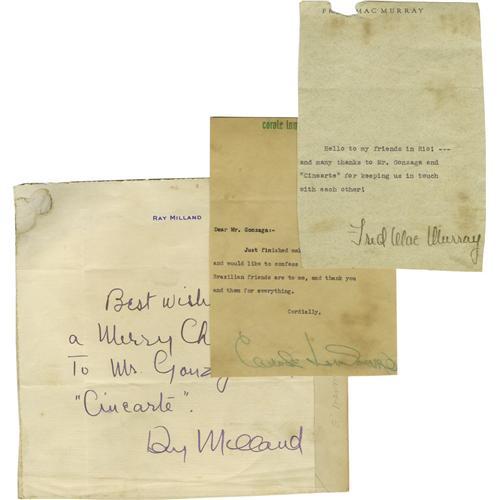 FRED MAC MURRAY
Hello to my friends in Rio! ---
and many thanks to Mr. Gonzaga and
"Cinearte" for keeping us in touch
with each other!
Fred Mac Murray
carole lom
Dear Mr. Gonzaga:-
Just finished
and would like to confess
Brazilian friends are to me, and thank you
and them for everything.
Cordially,
Carole
RAY MILLAND
Best wish
a Merry Ch
To Mr. Gonzag
"Cinearte".
Ray Milland